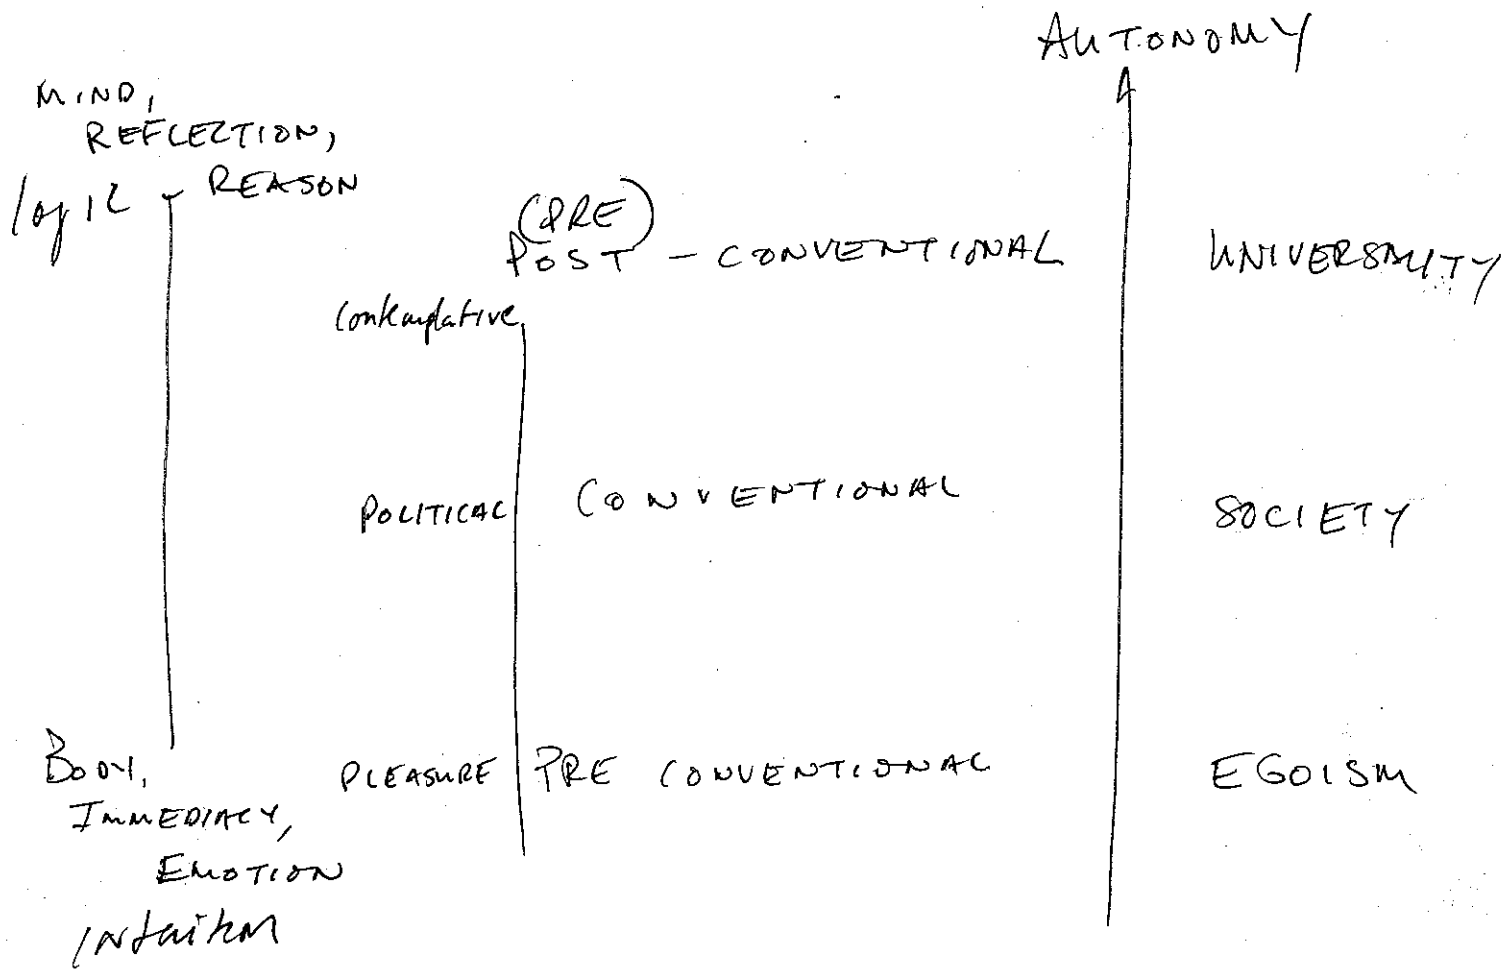 AUTONOMY
MIND,
REFLECTION,
logic REASON
(PRE)
POST - CONVENTIONAL
UNIVERSALITY
Contemplative
POLITICAL
CONVENTIONAL
SOCIETY
BODY,
IMMEDIACY,
EMOTION
INtuition
PLEASURE
PRE CONVENTIONAL
EGOISM